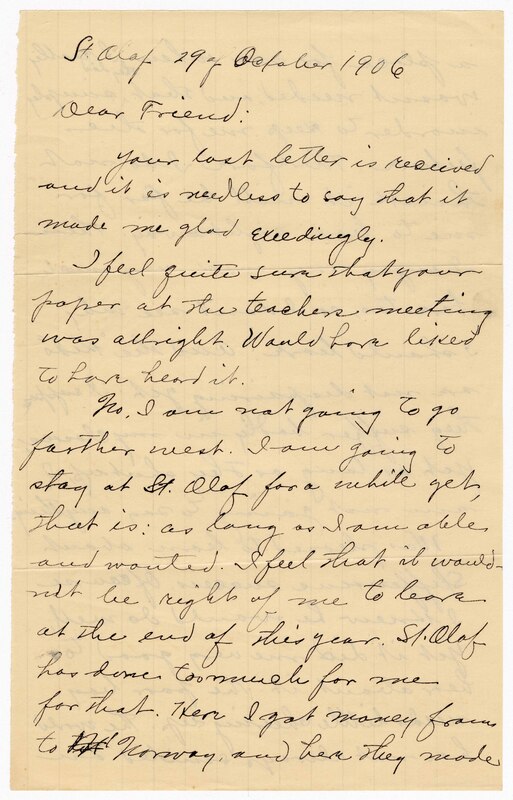 St. Olaf 29 of October 1906
Dear Friend:
Your last letter is received
and it is needless to say that it
made me glad exeedingly.
I feel quite sure that your
paper at the teachers meeting
was allright. Would have liked
to have heard it.
No, I am not going to go
farther west. I am going to
stay at St. Olaf for a while yet,
that is: as long as I am able
and wanted. I feel that it would-
n't be right of me to leave
at the end of this year. St. Olaf
has done too much for me
for that. Here I got money from
to Norway, and here they made